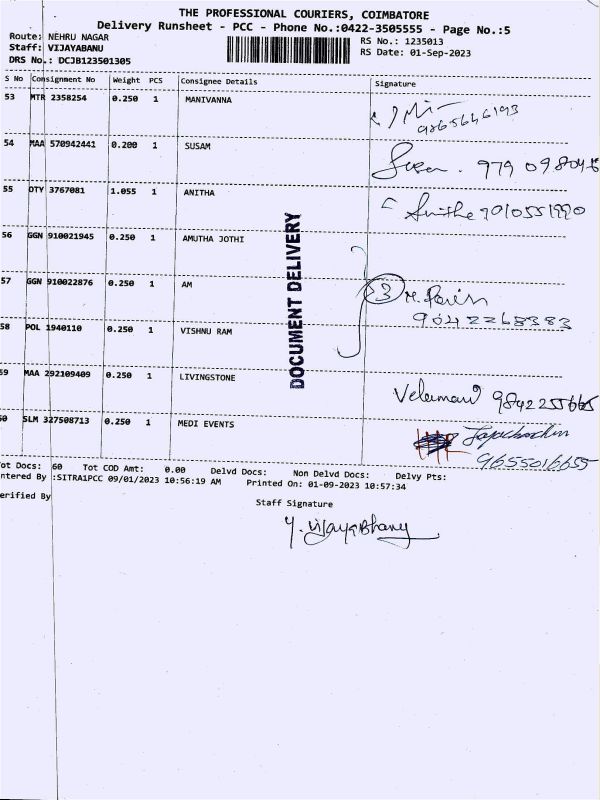 THE PROFESSIONAL COURIERS, COIMBATORE
Delivery Runsheet - PCC - Phone No.:0422-3505555 - Page No.:5
Route: NEHRU NAGAR
RS No.: 1235013
Staff: VIJAYABANU
RS Date: 01-Sep-2023
DRS No.: DCJB123501305
S No Consignment No Weight PCS Consignee Details Signature
53 MTR 2358254 0.250 1 MANIVANNA
9865646193
54 MAA 570942441 0.200 1 SUSAM
Susan. 979 098046
55 OTY 3767081 1.055 1 ANITHA
Anitha 7010551990
56 GGN 910021945 0.250 1 AMUTHA JOTHI
57 GGN 910022876 0.250 1 AM
3
9042268383
58 POL 1940110 0.250 1 VISHNU RAM
59 MAA 292109409 0.250 1 LIVINGSTONE
9842255665
60 SLM 327508713 0.250 1 MEDI EVENTS
9655016655
DOCUMENT DELIVERY
ot Docs: 60 Tot COD Amt: 0.00 Delvd Docs: Non Delvd Docs: Delvy Pts:
ntered By :SITRA1PCC 09/01/2023 10:56:19 AM Printed On: 01-09-2023 10:57:34
erified By
Staff Signature
Y. VijayaBhanu